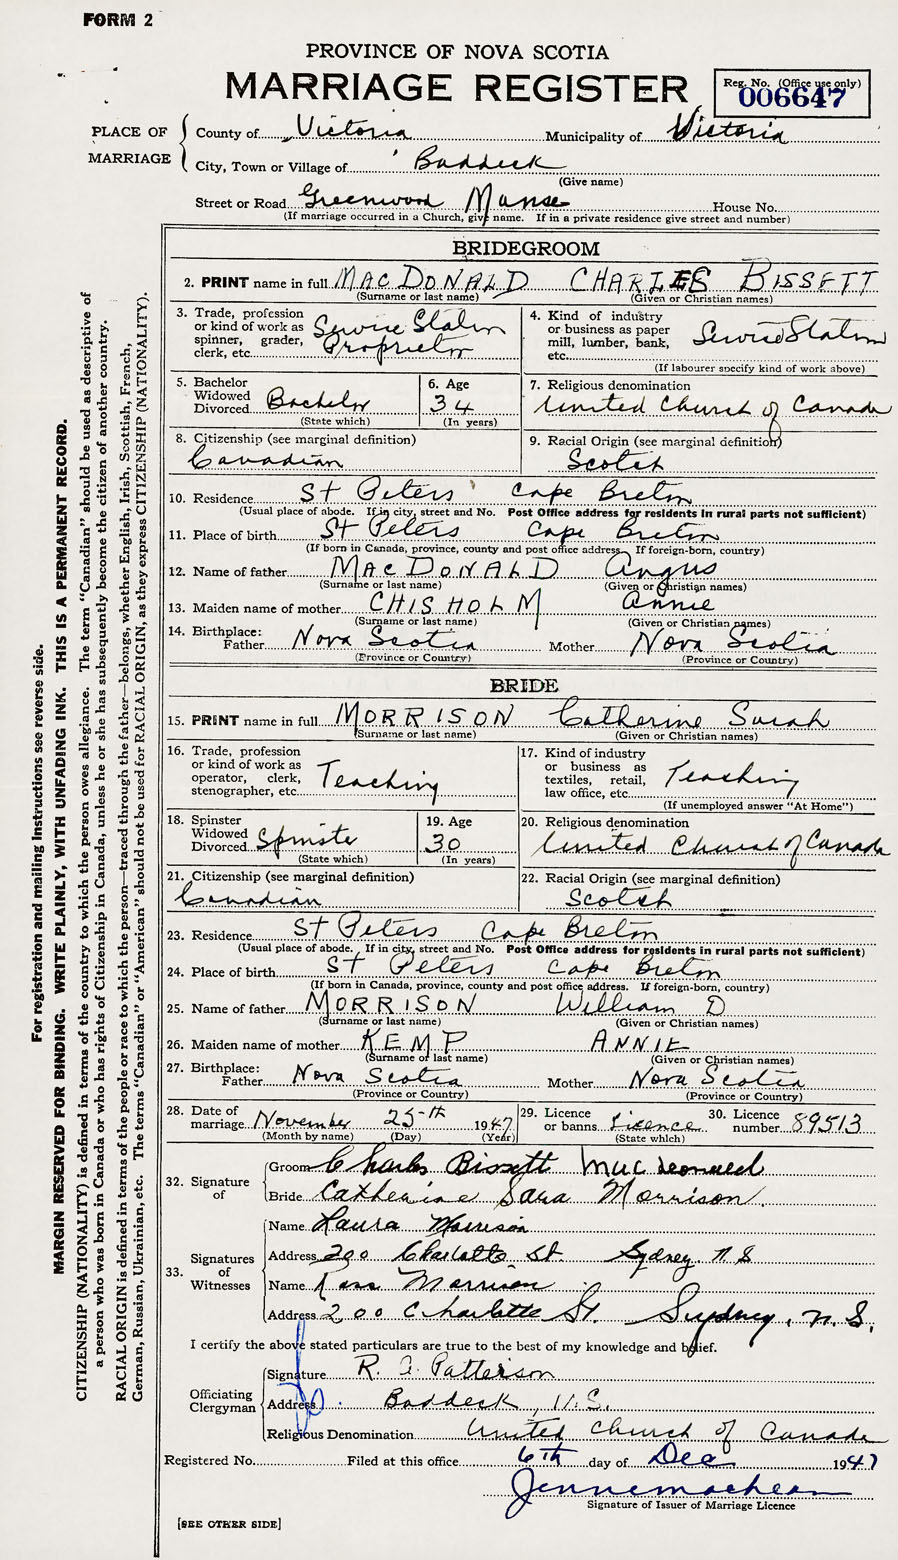 FORM 2
PROVINCE OF NOVA SCOTIA
MARRIAGE REGISTER
Reg. No. (Office use only)
006647
PLACE OF MARRIAGE
County of Victoria Municipality of Victoria
City, Town or Village of Baddeck
(Give name)
Street or Road Greenwood Manse House No.
(If marriage occurred in a Church, give name. If in a private residence give street and number)
BRIDEGROOM
2. PRINT name in full MACDONALD CHARLES BISSETT
(Surname or last name) (Given or Christian names)
3. Trade, profession or kind of work as spinner, grader, clerk, etc. Service Station Proprietor
4. Kind of industry or business as paper mill, lumber, bank, etc. Service Station
(If labourer specify kind of work above)
5. Bachelor Widowed Divorced Bachelor
(State which)
6. Age 34
(In years)
7. Religious denomination
United Church of Canada
8. Citizenship (see marginal definition)
Canadian
9. Racial Origin (see marginal definition)
Scotch
10. Residence St Peters Cape Breton
(Usual place of abode. If in city, street and No. Post Office address for residents in rural parts not sufficient)
11. Place of birth St Peters Cape Breton
(If born in Canada, province, county and post office address. If foreign-born, country)
12. Name of father MACDONALD Angus
(Surname or last name) (Given or Christian names)
13. Maiden name of mother CHISHOLM Annie
(Surname or last name) (Given or Christian names)
14. Birthplace: Father Nova Scotia Mother Nova Scotia
(Province or Country) (Province or Country)
BRIDE
15. PRINT name in full MORRISON Catherine Sarah
(Surname or last name) (Given or Christian names)
16. Trade, profession or kind of work as operator, clerk, stenographer, etc. Teaching
17. Kind of industry or business as textiles, retail, law office, etc. Teaching
(If unemployed answer "At Home")
18. Spinster Widowed Divorced Spinster
(State which)
19. Age 30
(In years)
20. Religious denomination
United Church of Canada
21. Citizenship (see marginal definition)
Canadian
22. Racial Origin (see marginal definition)
Scotch
23. Residence St Peters Cape Breton
(Usual place of abode. If in city, street and No. Post Office address for residents in rural parts not sufficient)
24. Place of birth St Peters Cape Breton
(If born in Canada, province, county and post office address. If foreign-born, country)
25. Name of father MORRISON William D
(Surname or last name) (Given or Christian names)
26. Maiden name of mother KEMP ANNIE
(Surname or last name) (Given or Christian names)
27. Birthplace: Father Nova Scotia Mother Nova Scotia
(Province or Country) (Province or Country)
28. Date of marriage November 25th 1947
(Month by name) (Day) (Year)
29. Licence or banns Licence
(State which)
30. Licence number 89513
32. Signature of
Groom Charles Bissett MacDonald
Bride Catherine Sara Morrison.
33. Signatures of Witnesses
Name Laura Morrison
Address 200 Charlotte St. Sydney. N S
Name Ross Morrison
Address 200 Charlotte St. Sydney, N.S.
I certify the above stated particulars are true to the best of my knowledge and belief.
Officiating Clergyman
Signature R. A. Patterson
Address Baddeck, N.S.
Religious Denomination United Church of Canada
Registered No. Filed at this office 6th day of Dec 1947
Signature of Issuer of Marriage Licence
[SEE OTHER SIDE]
For registration and mailing instructions see reverse side.
MARGIN RESERVED FOR BINDING. WRITE PLAINLY, WITH UNFADING INK. THIS IS A PERMANENT RECORD.
CITIZENSHIP (NATIONALITY) is defined in terms of the country to which the person owes allegiance. The term "Canadian" should be used as descriptive of
a person who was born in Canada or who has rights of Citizenship in Canada, unless he or she has subsequently become the citizen of another country.
RACIAL ORIGIN is defined in terms of the people or race to which the person—traced through the father—belongs, whether English, Irish, Scottish, French,
German, Russian, Ukrainian, etc. The terms "Canadian" or "American" should not be used for RACIAL ORIGIN, as they express CITIZENSHIP (NATIONALITY).